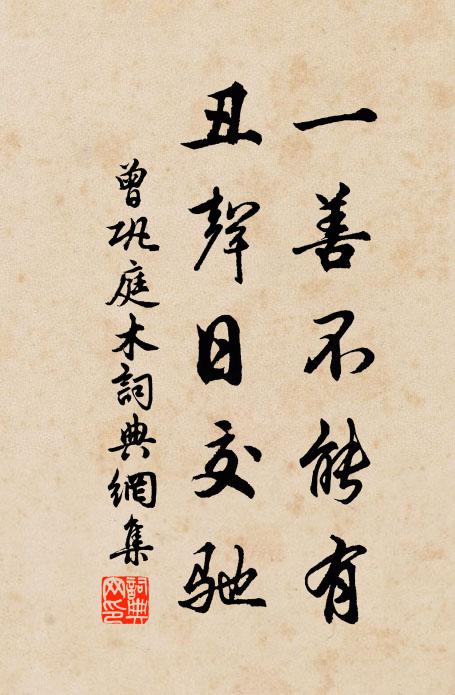 一善不能有
丑聲日交馳
曾巩庭木詞典網集
詞典網印